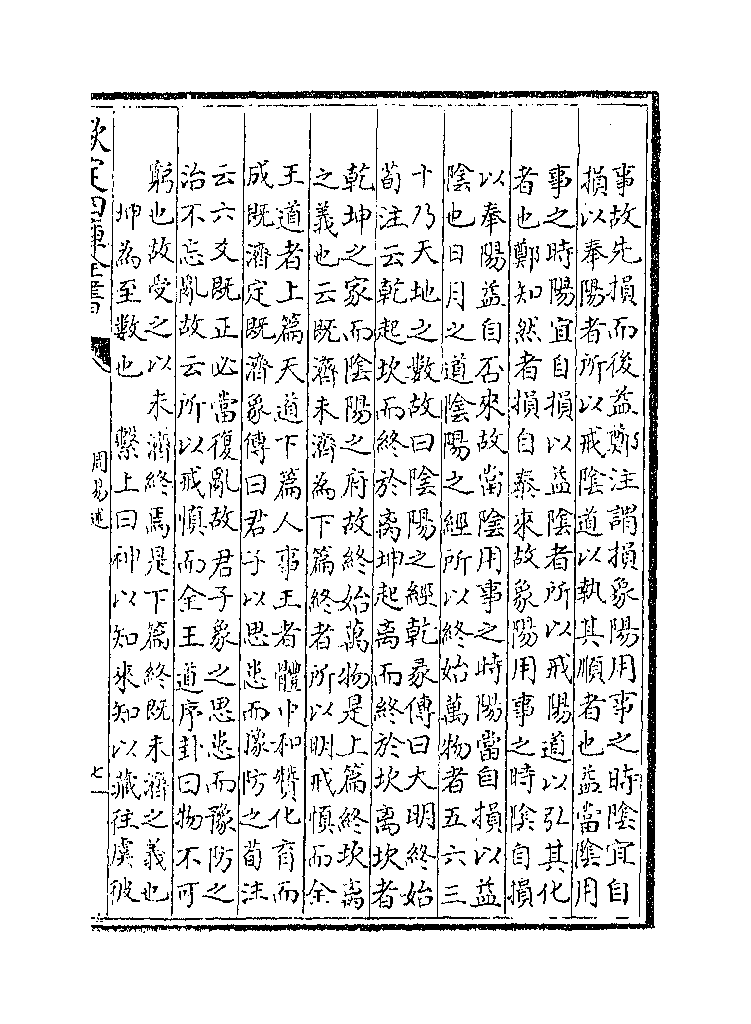 事故先損而後益鄭注謂損象陽用事之時陰宜自
損以奉陽者所以戒陰道以執其順者也益當陰用
事之時陽宜自損以益陰者所以戒陽道以弘其化
者也鄭知然者損自泰來故象陽用事之時陰自損
以奉陽益自否來故當陰用事之時陽當自損以益
陰也日月之道陰陽之經所以終始萬物者五六三
十乃天地之數故曰陰陽之經乾彖傳曰大明終始
荀注云乾起坎而終於离坤起离而終於坎离坎者
乾坤之家而陰陽之府故終始萬物是上篇終坎离
之義也云既濟未濟為下篇終者所以明戒慎而全
王道者上篇天道下篇人事王者體中和贊化育而
成既濟定既濟象傳曰君子以思患而豫防之荀注
云六爻既正必當復亂故君子象之思患而豫防之
治不忘亂故云所以戒慎而全王道序卦曰物不可
窮也故受之以未濟終焉是下篇終既未濟之義也
坤為至數也 繫上曰神以知來知以藏往虞彼
欽定四庫全書
周易述
七